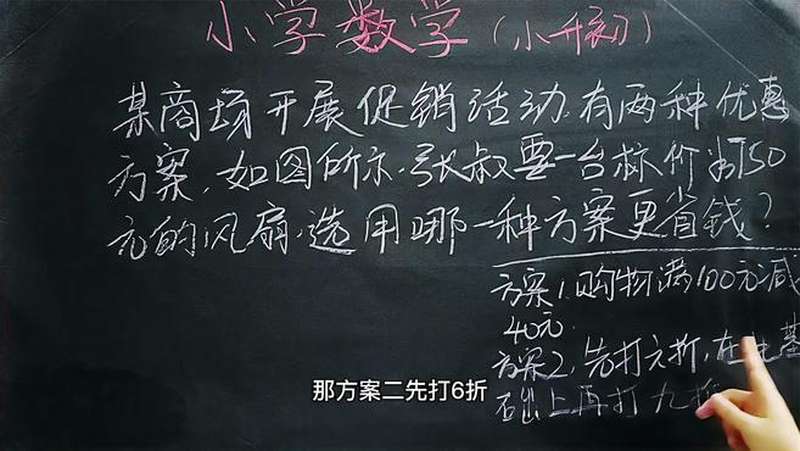 小学数学(小升初)
某商场开展促销活动.有两种优惠
方案,如图所示.张叔要一台标价为150
元的风扇,选用哪一种方案更省钱?
方案1.购物满100元减
40元.
方案2,先打六折,在此基
础上再打九折
那方案二先打6折